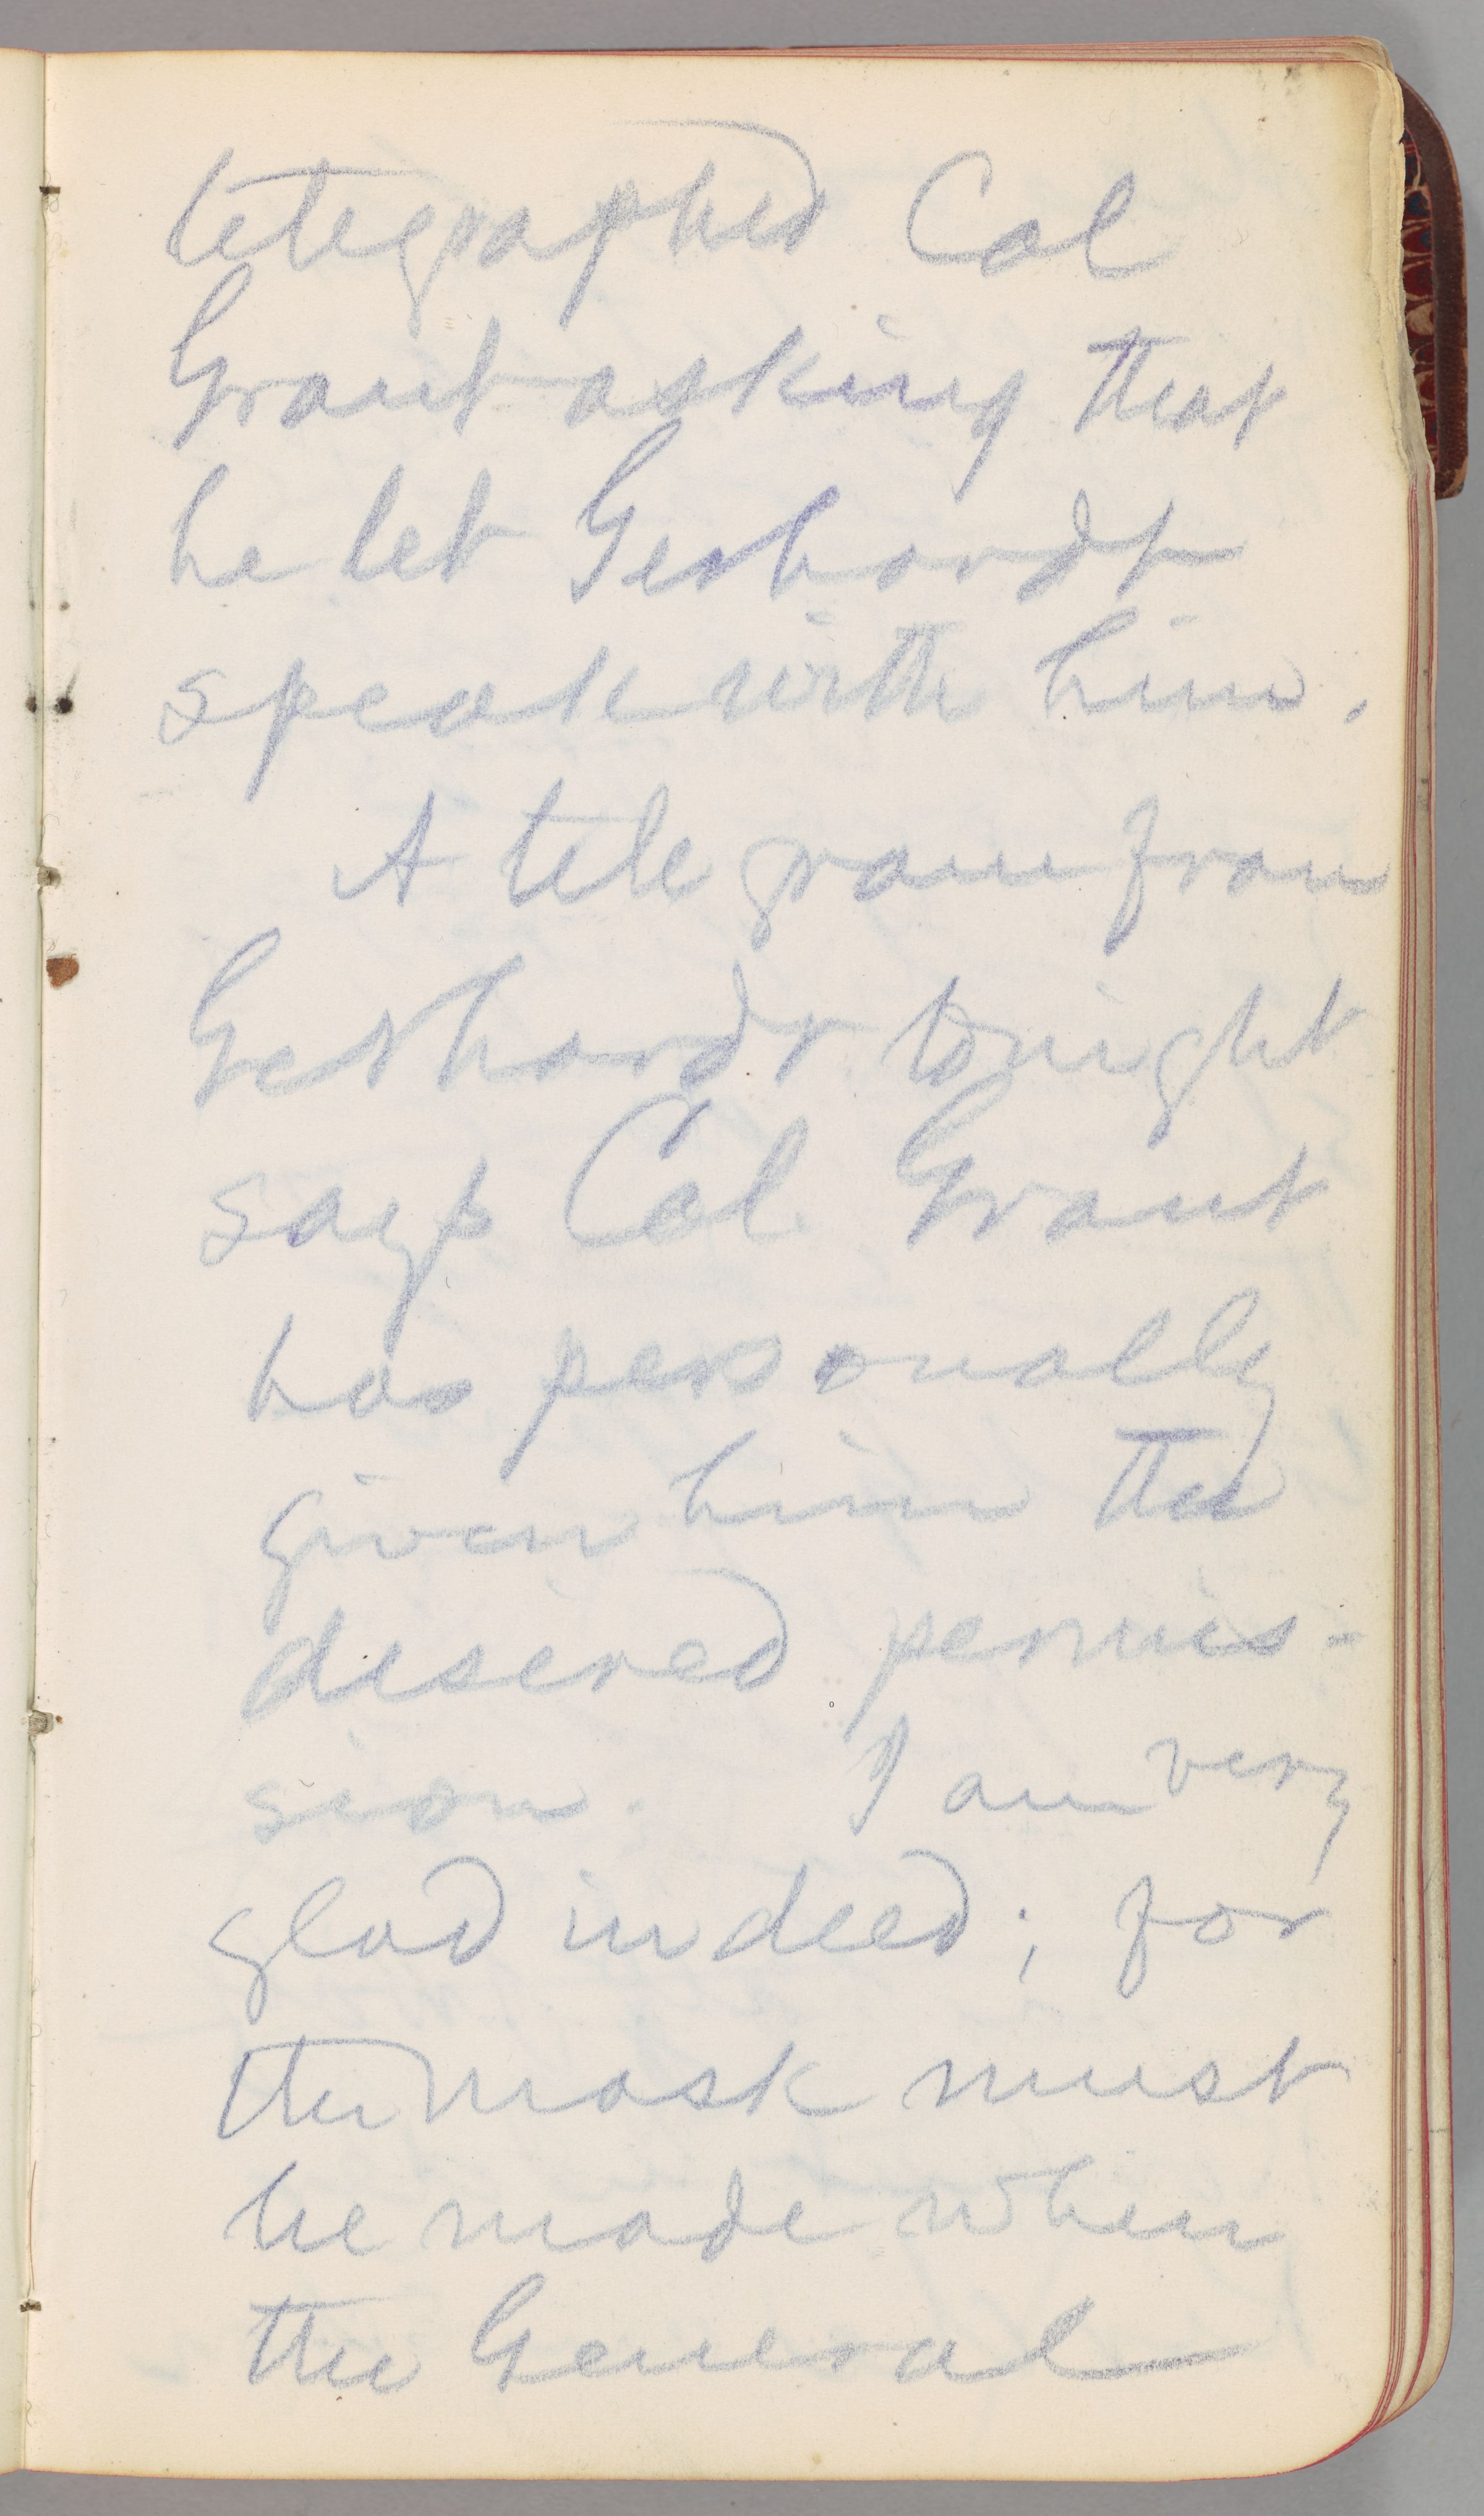 telegraphed Col
Grant asking that
he let Gerhardt
speak with him.
A tele gram from
Gerhardt tonight
says Col Grant
has personally
given him the
desired permis-
sion. I am very
glad indeed; for
the mask must
be made when
the General